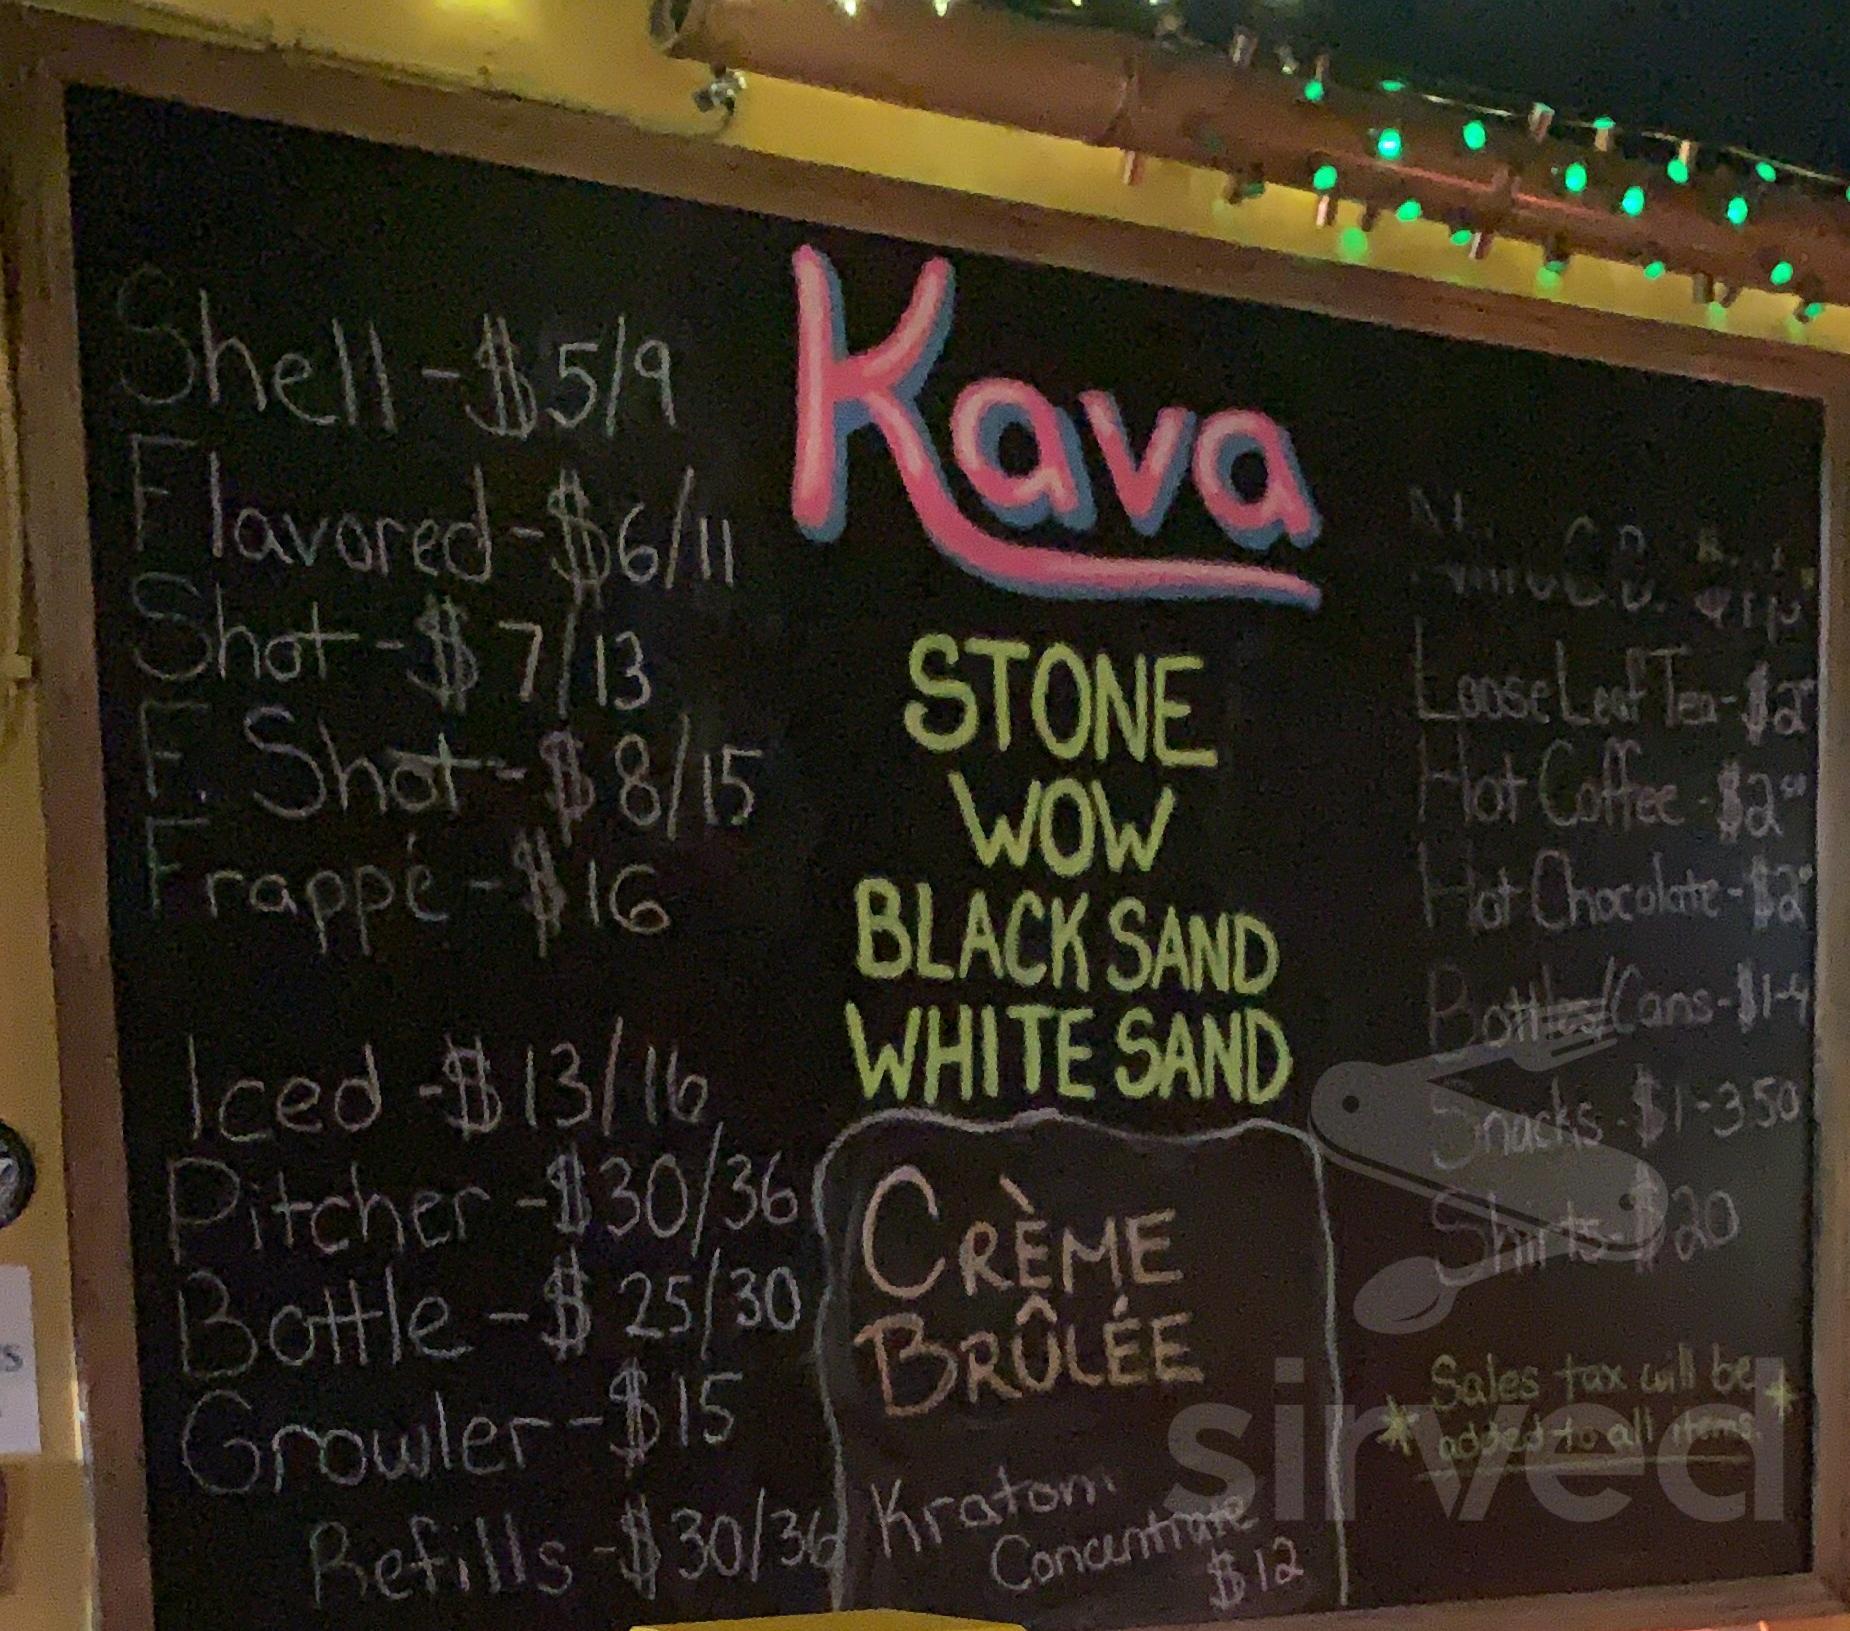 Shell - $5/9
Flavored - $6/11
Shot - $7/13
F. Shot - $8/15
Frappé - $16
Iced - $13/16
Pitcher - $30/36
Bottle - $25/30
Growler - $15
Refills - $30/36
Kava
STONE
WOW
BLACK SAND
WHITE SAND
CRÈME
BRÛLÉE
Kratom
Concentrate
$12
Loose Leaf Tea - $2
Hot Coffee - $2⁰⁰
Hot Chocolate - $2
Bottles/Cans - $1-4
Snacks - $1-3.50
Shirts - $20
* Sales tax will be *
added to all items.
sirved